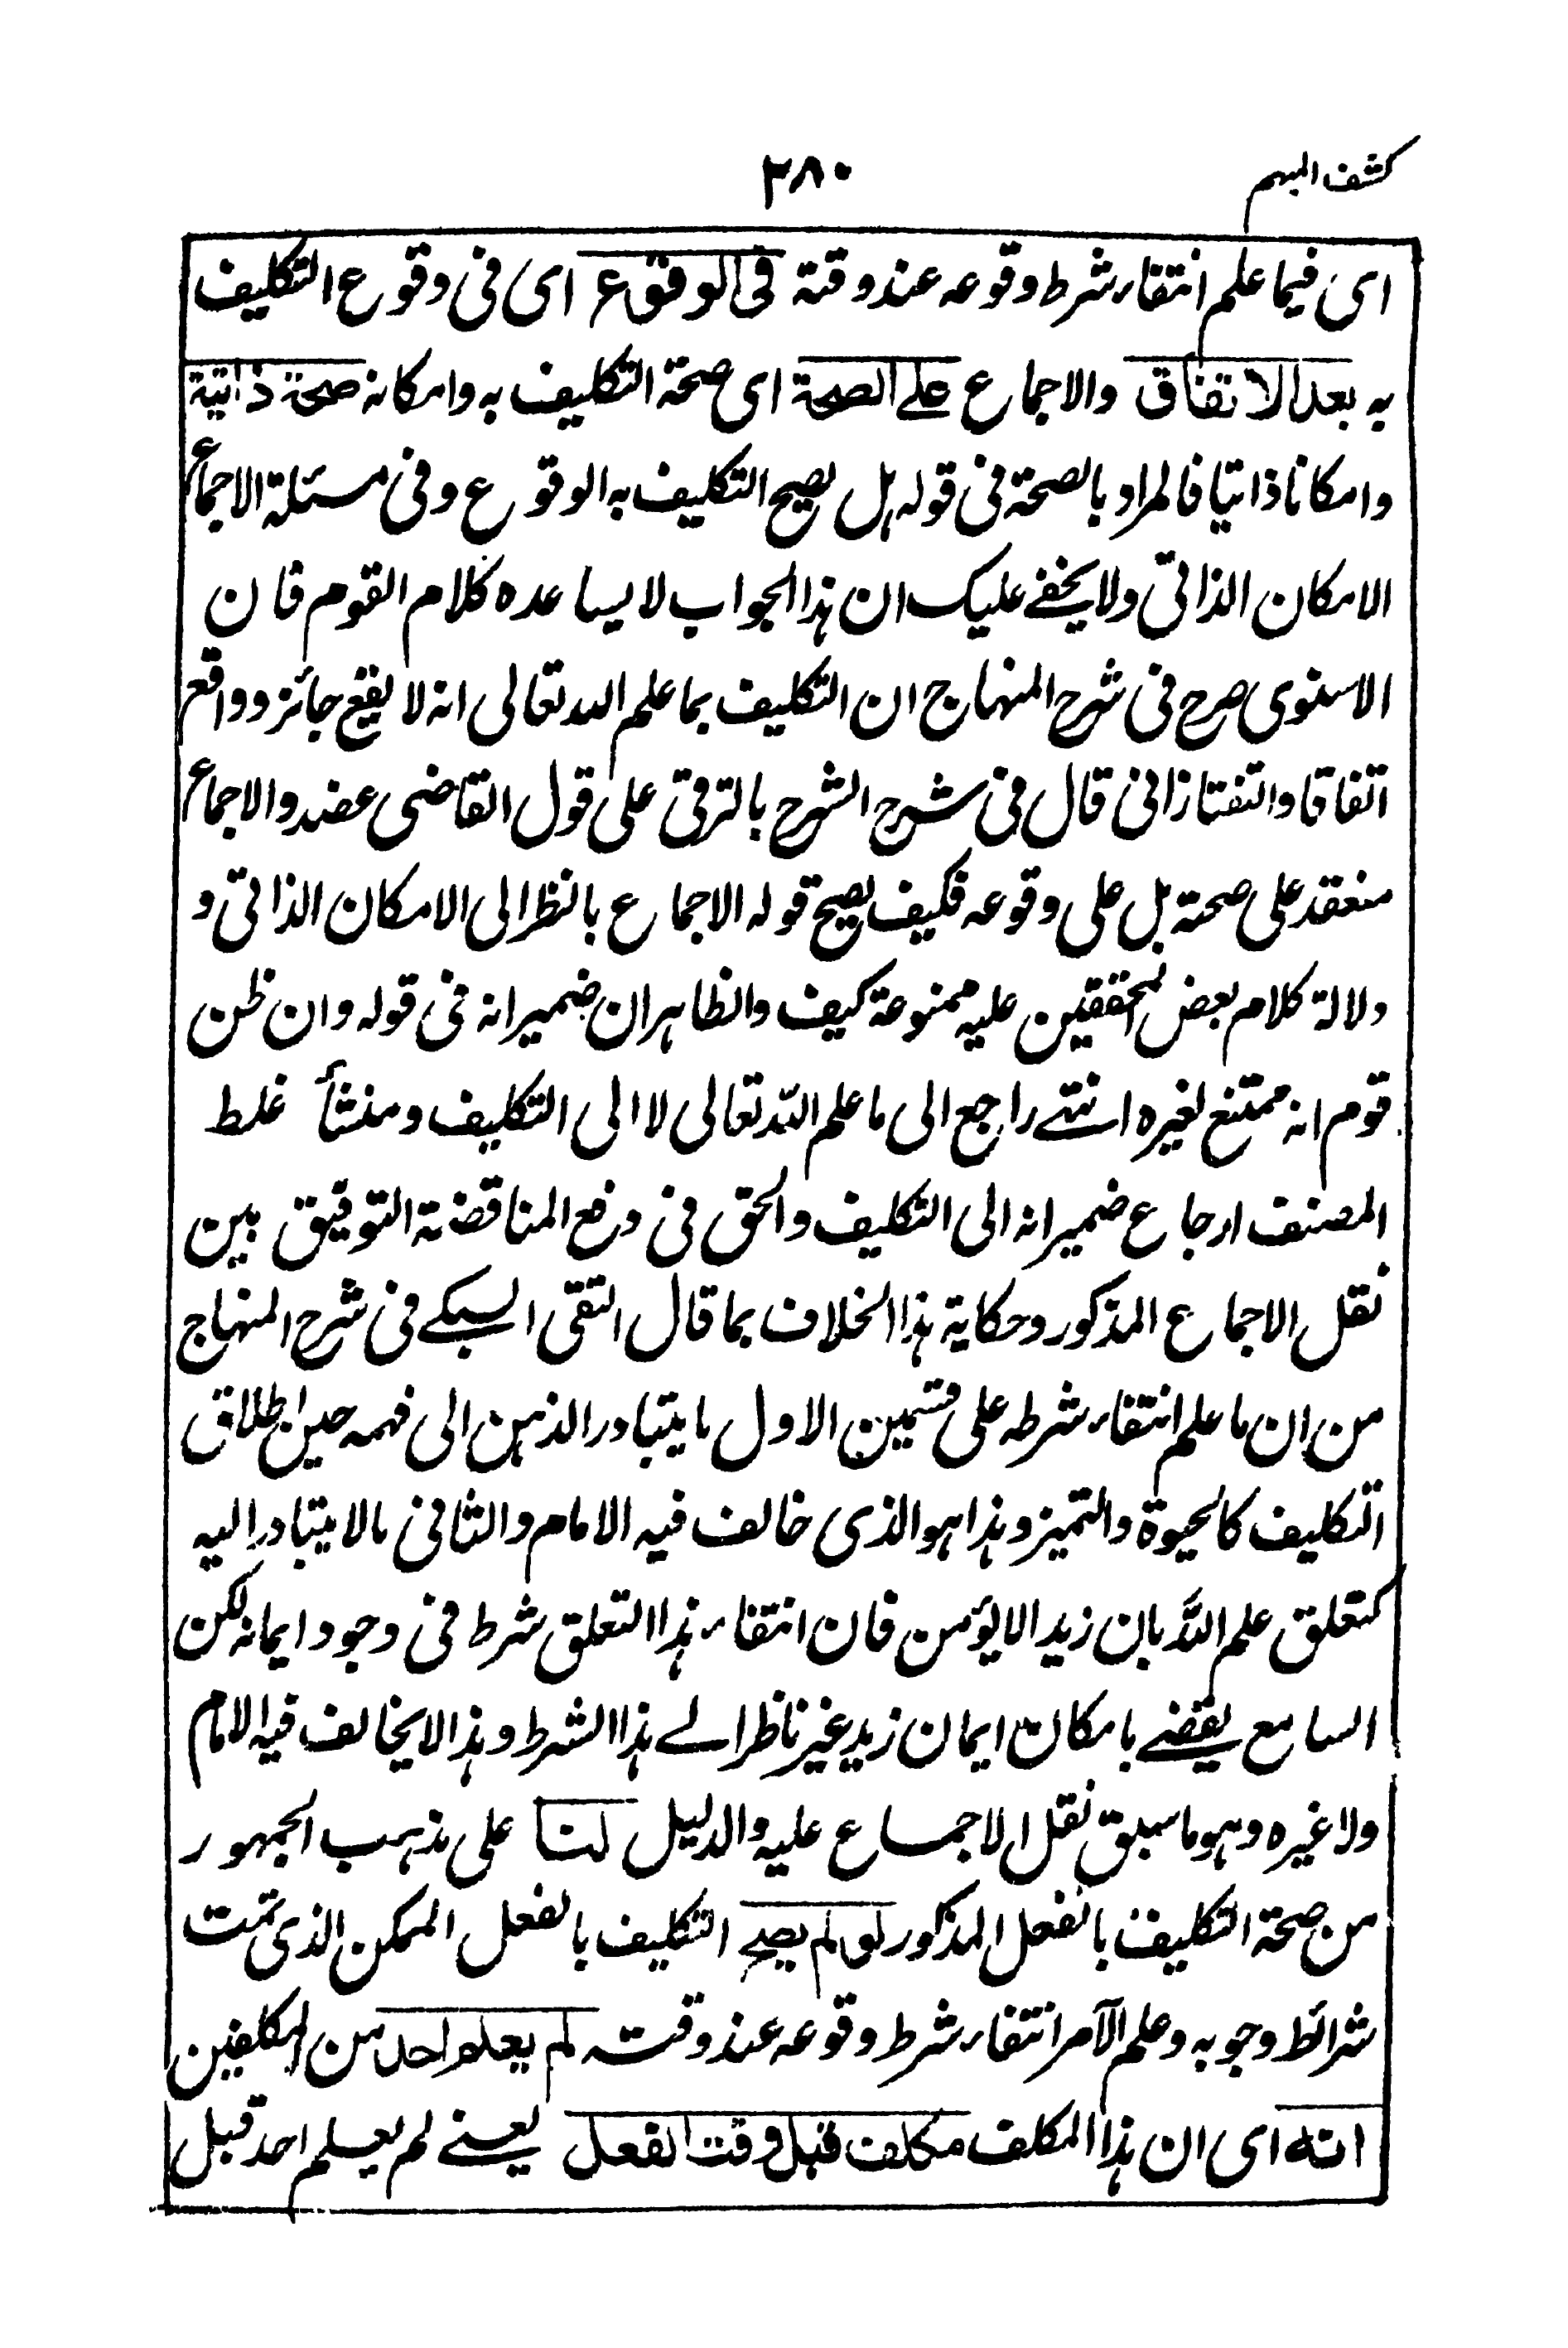 كشف المبهم
٢٨٠
اى فيما علم انتفاء شرط وقوعه عند وقته فى الوقوع اى فى وقوع التكليف
به بعد الاتفاق والاجماع على الصحة اى صحة التكليف به وامكانه صحة ذاتية
وامكانا ذاتيا فالمراد بالصحة فى قوله هل يصح التكليف به الوقوع وفى مسئلة الاجماع
الامكان الذاتى ولا يخفے عليك ان هذا الجواب لا يساعده كلام القوم فان
الاسنوى صرح فى شرح المنهاج ان التكليف بما علم الله تعالى انه لا يقع جائز وواقع
اتفاقا والتفتازانى قال فى شرح الشرح بالترقى على قول القاضى عضد والاجماع
منعقد على صحته بل على وقوعه فكيف يصح قوله الاجماع بالنظر الى الامكان الذاتى و
دلالة كلام بعض المحققين عليه ممنوعة كيف والظاهر ان ضمير انه فى قوله وان ظن
قوم انه ممتنع لغيره انتهے راجع الى ما علم الله تعالى لا الى التكليف ومنشأ غلط
المصنف ارجاع ضمير انه الى التكليف والحق فى دفع المناقضة التوفيق بين
نقل الاجماع المذكور وحكاية هذا الخلاف بما قال التقى السبكے فى شرح المنهاج
من ان ما علم انتفاء شرطه على قسمين الاول ما يتبادر الذهن الى فهمه حين اطلاق
التكليف كالحيوة والتميز وهذا هو الذى خالف فيه الامام والثانى ما لا يتبادر اليه
كتعلق علم الله بان زيدا لا يؤمن فان انتفاء هذا التعلق شرط فى وجود ايمانه لكن
السامع يقضے بامكان ايمان زيد غير ناظر الے هذا الشرط وهذا لا يخالف فيه الامام
ولا غيره وهو ما سبق نقل الاجماع عليه والدليل لنا على مذهب الجمهور
من صحة التكليف بالفعل المذكور لو لم يصح التكليف بالفعل الممكن الذى تمت
شرائط وجوبه وعلم الآمر انتفاء شرط وقوعه عند وقته لم يعلم احد من المكلفين
انه اى ان هذا المكلف مكلف قبل وقت الفعل يعنے لم يعلم احد قبل